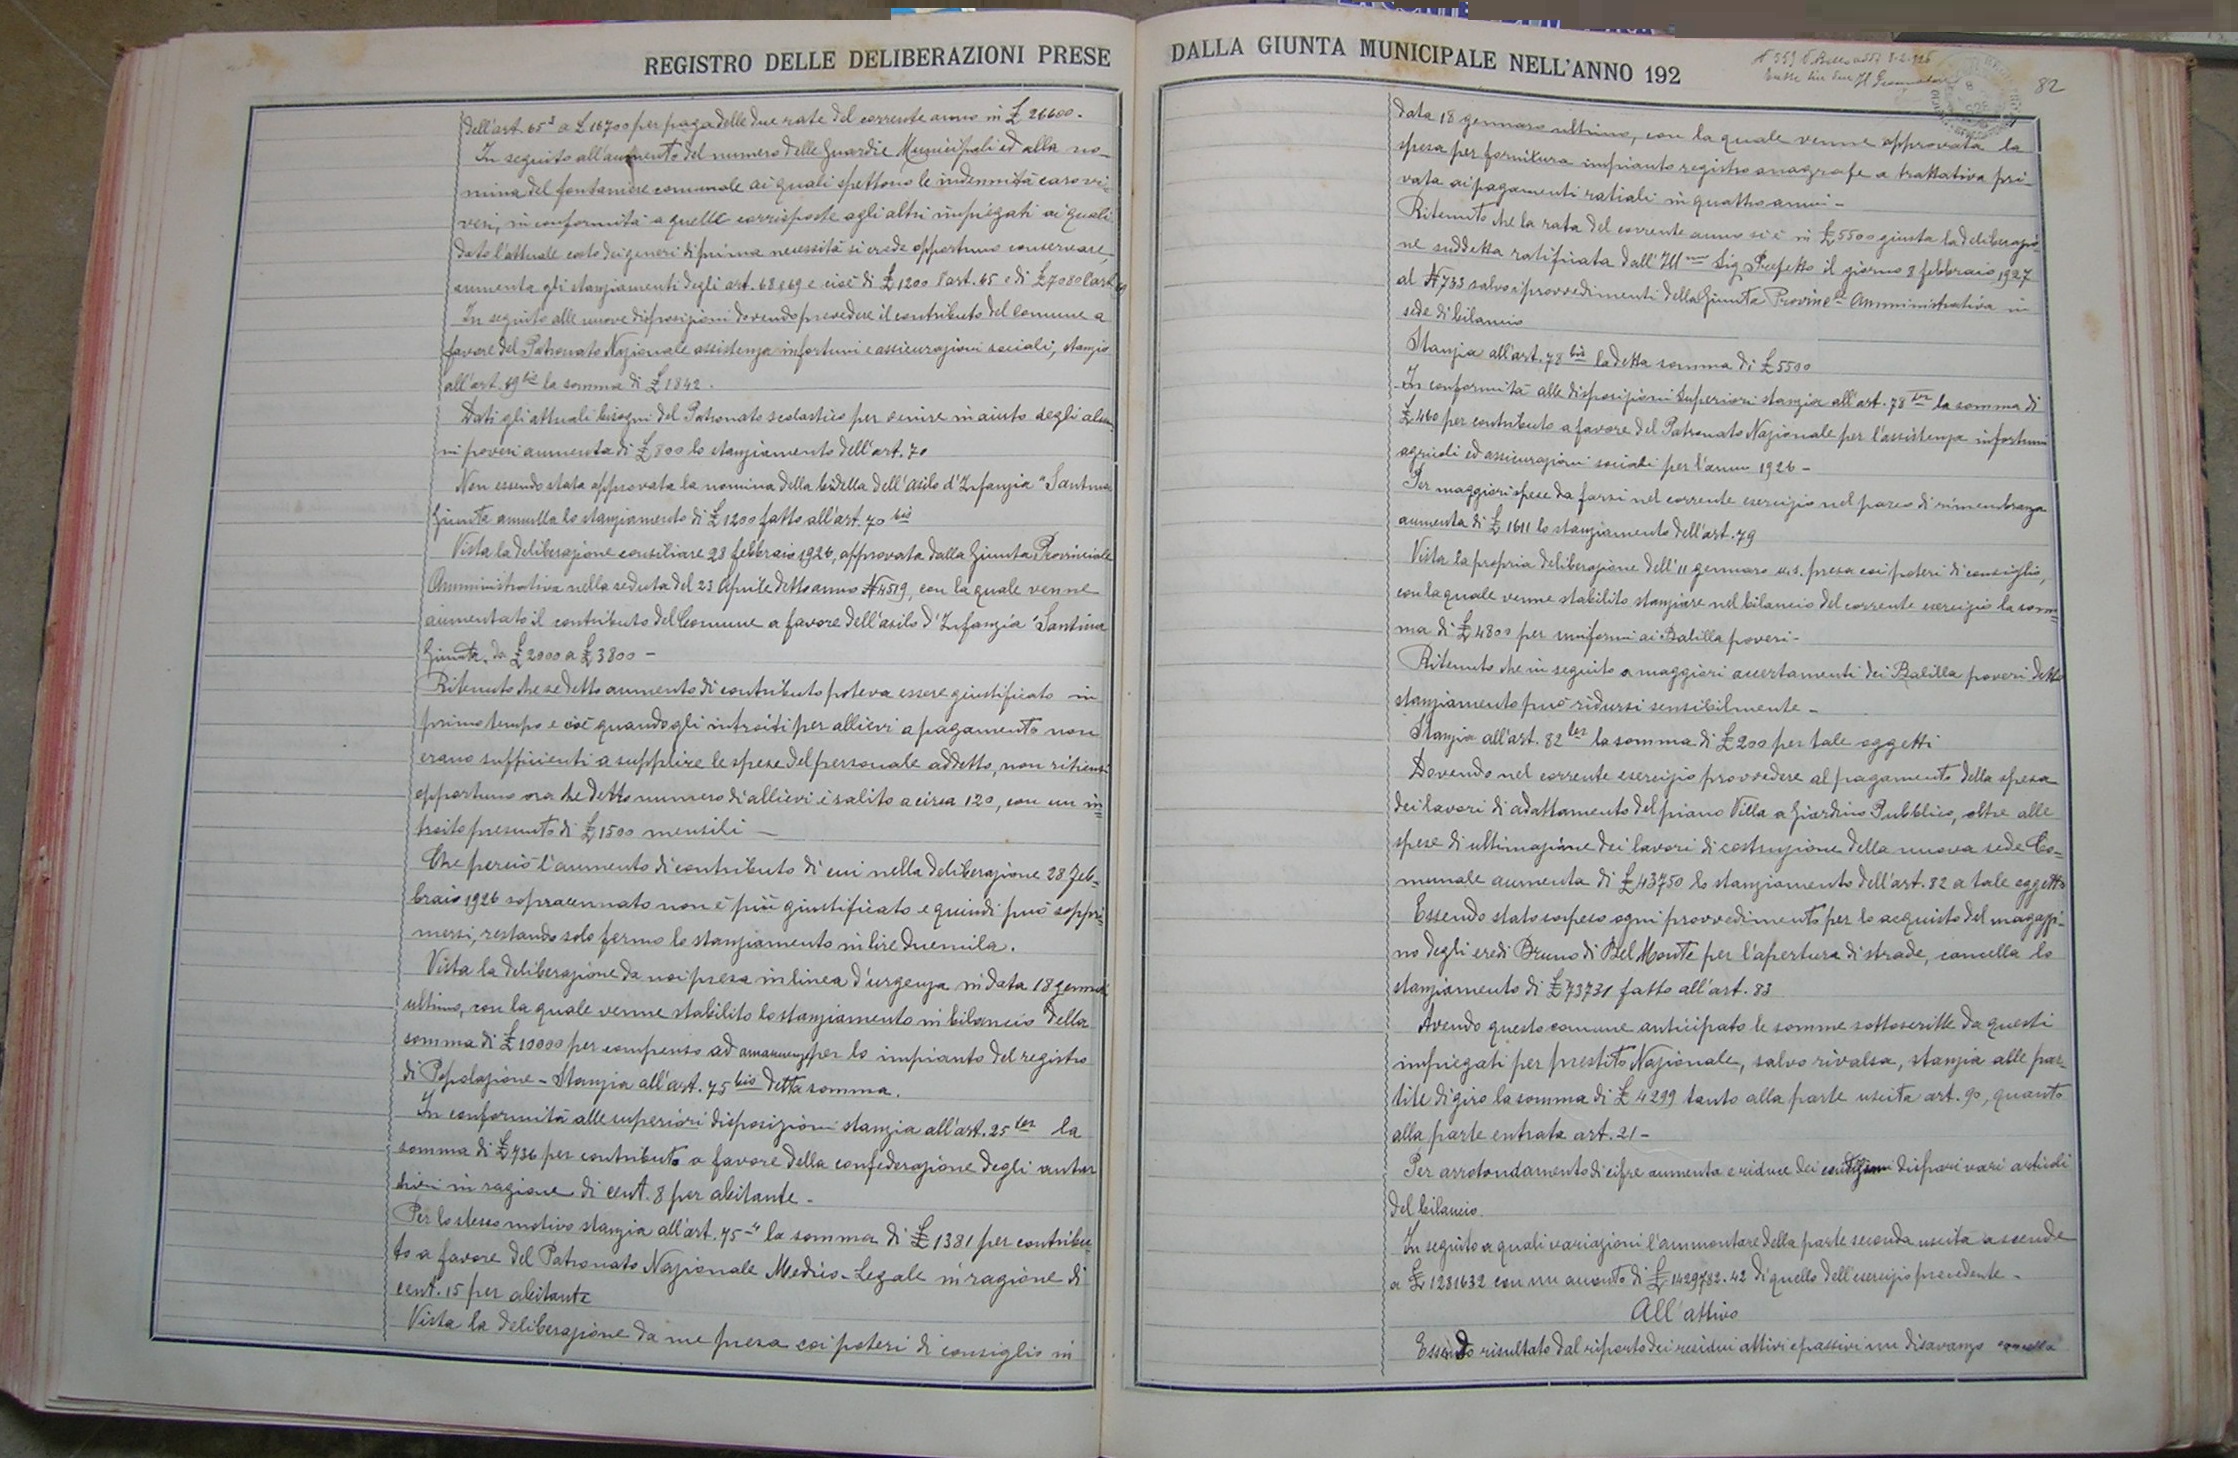 REGISTRO DELLE DELIBERAZIONI PRESE
dell'art. 65 a £ 16700 per paga delle due rate del corrente anno in £ 26600.
In seguito all'aumento del numero delle Guardie Municipali ed alla no-
mina del fontaniere comunale ai quali spettono le indennità caro vi-
veri, in conformità a quelle corrisposte agli altri impiegati ai quali
dato l'attuale costo dei generi di prima necessità si crede opportuno conservare,
aumenta gli stanziamenti degli art. 68 e 69 e cioè di £ 1200 l'art. 65 e di £ 7080 l'art
In seguito alle nuove disposizioni dovendo prevedere il contributo del Comune a
favore del Patronato Nazionale assistenza infortuni e assicurazioni sociali, stanzia
all'art. 69 bis la somma di £ 1842.
Dati gli attuali bisogni del Patronato scolastico per venire in aiuto degli alun-
ni poveri aumenta di £ 800 lo stanziamento dell'art. 70
Non essendo stata approvata la nomina della bidella dell'asilo d'Infanzia "Santina
Giunta annulla lo stanziamento di £ 1200 fatto all'art. 70 bis
Vista la deliberazione consiliare 28 febbraio 1926, approvata dalla Giunta Provinciale
Amministrativa nella seduta del 23 Aprile detto anno N 4519, con la quale venne
aumentato il contributo del Comune a favore dell'asilo d'Infanzia "Santina
Giunta, da £ 2000 a £ 3800 -
Ritenuto che se detto aumento di contributo poteva essere giustificato in
primo tempo e cioè quando gli introiti per allievi a pagamento non
erano sufficienti a supplire le spese del personale addetto, non ritiensi
opportuno ora che detto numero di allievi è salito a circa 120, con un in=
troito presunto di £ 1500 mensili -
Che perciò l'aumento di contributo di cui nella deliberazione 28 feb-
braio 1926 sopracennato non è più giustificato e quindi può soppri-
mersi, restando solo fermo lo stanziamento in lire duemila.
Vista la deliberazione da noi presa in linea d'urgenza in data 18 gennaio
ultimo, con la quale venne stabilito lo stanziamento in bilancio della
somma di £ 10000 per compenso ad amanuenze per lo impianto del registro
di Popolazione - Stanzia all'art. 75 bis detta somma.
In conformità alle superiori disposizioni stanzia all'art. 25 ter la
somma di £ 736 per contributo a favore della confederazione degli autar
chici in ragione di cent. 8 per abitante -
Per lo stesso motivo stanzia all'art. 75 la somma di £ 1381 per contribu-
to a favore del Patronato Nazionale Medico-Legale in ragione di
cent. 15 per abitante
Vista la deliberazione da me presa coi poteri di consiglio in
DALLA GIUNTA MUNICIPALE NELL'ANNO 192
82
data 18 gennaio ultimo, con la quale venne approvata la
spesa per fornitura impianto registro anagrafe a trattativa pri-
vata ai pagamenti ratiali in quattro anni -
Ritenuto che la rata del corrente anno si è in £ 5500 giusta la deliberazio-
ne suddetta ratificata dall'Ill mo Sig Prefetto il giorno 8 febbraio 1927
al N 733 salvo i provvedimenti della Giunta Provinc le Amministrativa in
sede di bilancio
Stanzia all'art. 78 bis la detta somma di £ 5500
In conformità alle disposizioni superiori stanzia all'art. 78 ter la somma di
£ 460 per contributo a favore del Patronato Nazionale per l'assistenza infortuni
agricoli ed assicurazioni sociali per l'anno 1926 -
Per maggiori spese da farsi nel corrente esercizio nel parco di rimembranza
aumenta di £ 1611 lo stanziamento dell'art. 79
Vista la propria deliberazione dell'11 gennaro u.s. presa coi poteri di consiglio,
con la quale venne stabilito stanziare nel bilancio del corrente esercizio la som=
ma di £ 4800 per uniformi ai Balilla poveri -
Ritenuto che in seguito a maggiori accertamenti dei Balilla poveri detto
stanziamento può ridursi sensibilmente -
Stanzia all'art. 82 ter la somma di £ 200 per tale oggetti
Dovendo nel corrente esercizio provvedere al pagamento della spesa
dei lavori di adattamento del piano Villa a Giardino Pubblico, oltre alle
spese di ultimazione dei lavori di costruzione della nuova sede Co=
munale aumenta di £ 43750 lo stanziamento dell'art. 82 a tale oggetto
Essendo stato sospeso ogni provvedimento per lo acquisto del magazzi-
no degli eredi Bruno di Bel Monte per l'apertura di strade, cancella lo
stanziamento di £ 73731 fatto all'art. 83
Avendo questo comune anticipato le somme sottoscritte da questi
impiegati per prestito Nazionale, salvo rivalsa, stanzia alle par-
tite di giro la somma di £ 4299 tanto alla parte uscita art. 90, quanto
alla parte entrata art. 21 -
Per arrotondamento di cifre aumenta e riduce dei dispari vari articoli
del bilancio.
In seguito a quali variazioni l'ammontare della parte seconda uscita ascende
a £ 1281632 con un aumento di £ 1429782.42 di quello dell'esercizio precedente -
All'attivo
Essendo risultato dal riporto dei residui attivi e passivi un disavanzo cancella